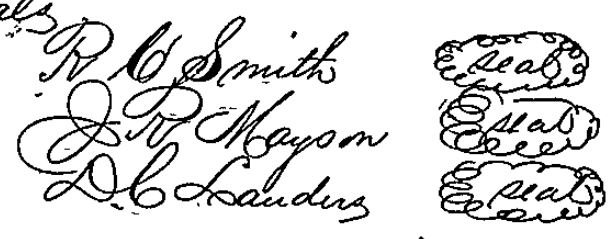 R C Smith seal
J R Mayson seal
D C Landers seal